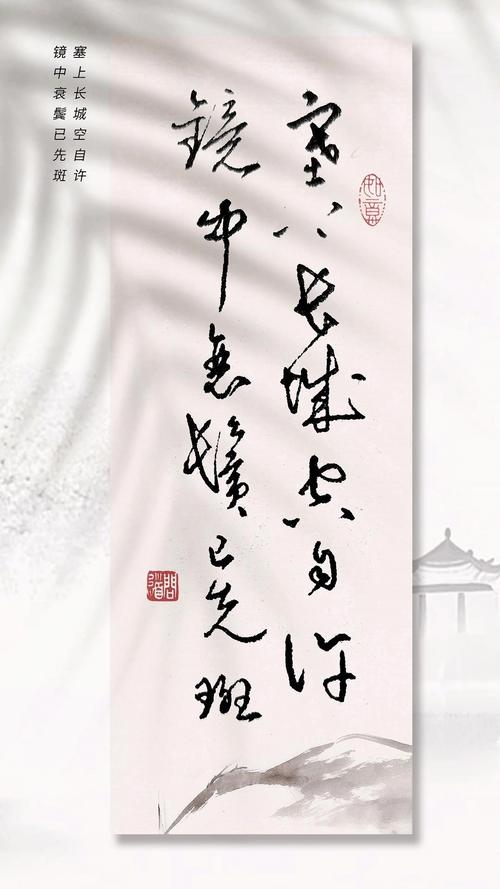 塞上长城空自许
镜中衰鬓已先斑
塞上长城空自许
鏡中衰鬢已先斑
如意
问道